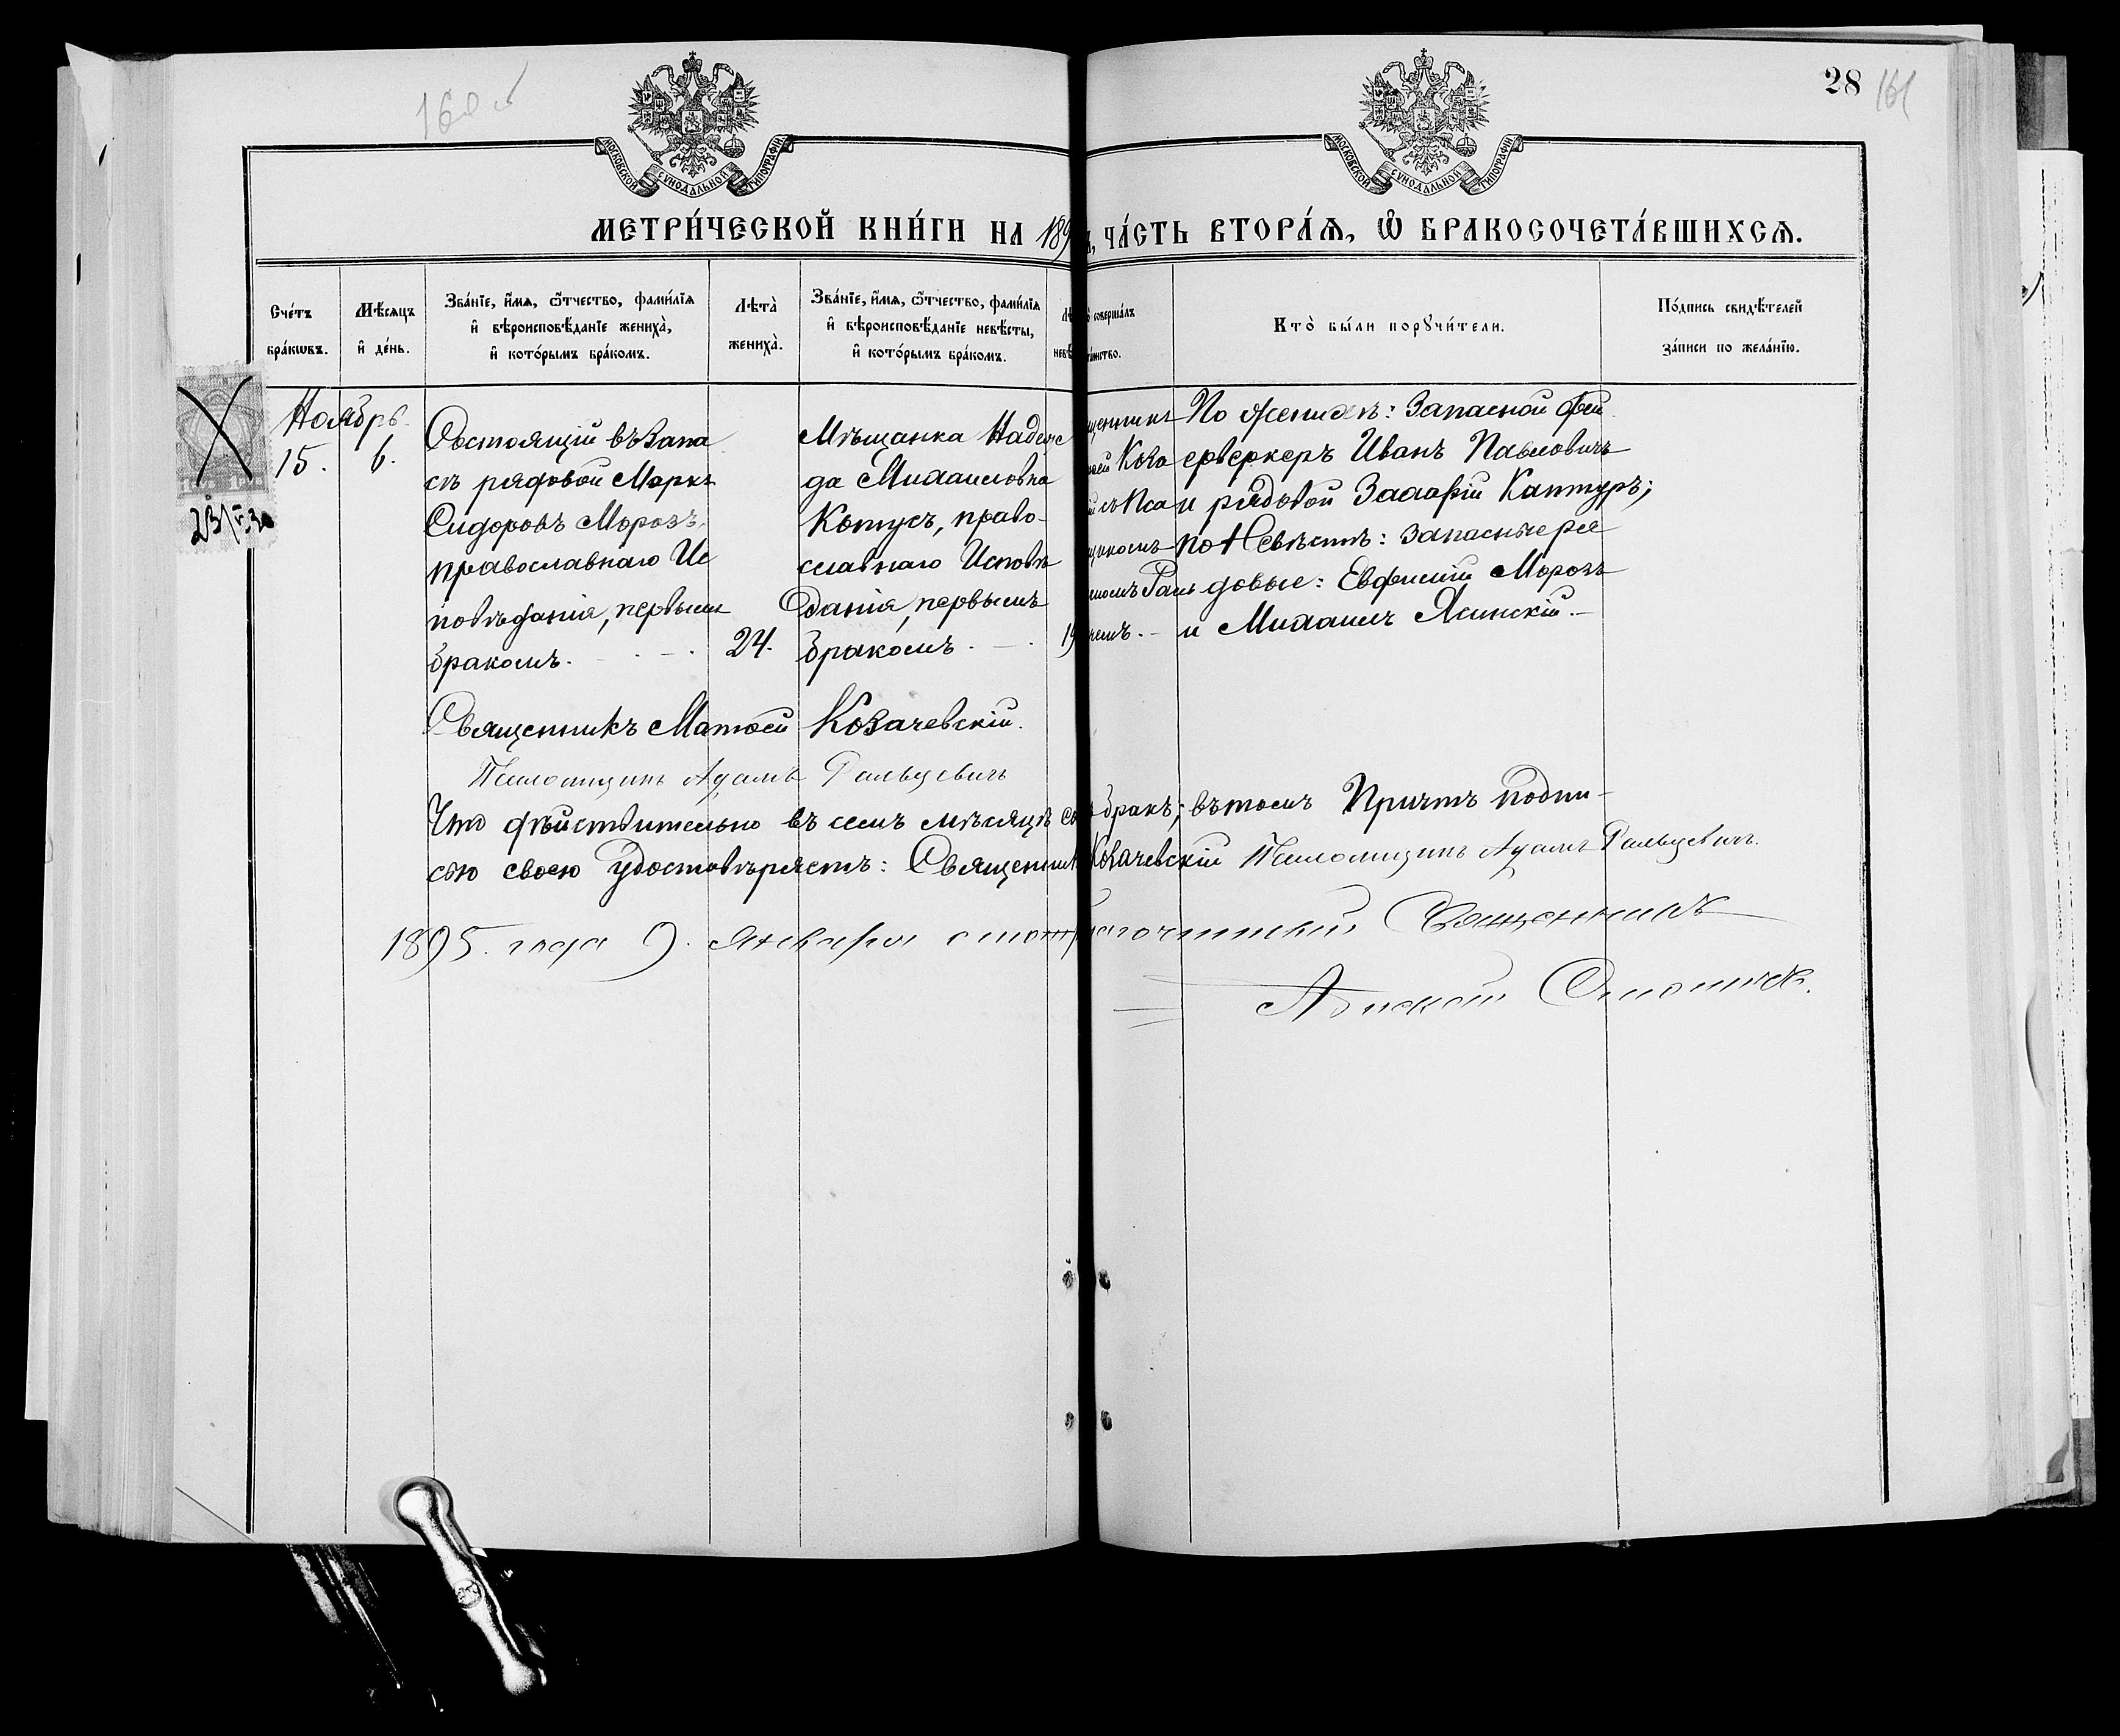 160 об
28 161
МОСКОВСКОЙ СѴНОДАЛЬНОЙ ТИПОГРАФІИ
МОСКОВСКОЙ СѴНОДАЛЬНОЙ ТИПОГРАФІИ
МЕТРИ́ЧЕСКОЙ КНИ́ГИ НА 189
ЧА́СТЬ ВТОРА́Ѧ, Ѿ БРАКОСОЧЕТА́ВШИХСѦ.
Сче́тъ бра́кѡвъ.
Мѣ́сяцъ и҆ де́нь.
Зва́нїе, и҆́мѧ, ѻ҆́тчество, фами́лїѧ
и҆ вѣроисповѣ́данїе жениха̀,
и҆ кото́рымъ бра́комъ.
Лѣта̀
жениха̀.
Зва́нїе, и҆́мѧ, ѻ҆́тчество, фами́лїѧ
и҆ вѣроисповѣ́данїе невѣ́сты,
и҆ кото́рымъ бра́комъ.
Лѣ
невѣ
соверша́лъ
та́инство.
Кто̀ бы́ли порꙋчи́тели.
По́дпись свидѣ́телей
за́писи по жела́нїю.
Ноябрь.
15.
6.
Состоящій въ запа
сѣ рядовой Маркъ
Сидоровъ Морозъ,
православнаго Ис
повѣданія, первымъ
бракомъ.
24.
Мѣщанка Надеж
да Михаиловна
Котусъ, право-
славнаго Исповѣ
данія, первымъ
бракомъ.
19
щенникъ
Коза
съ Пса
щикомъ
Раль
чемъ.
По Женихѣ: Запасной фей
ерверкеръ Иванъ Павловичъ
и рядовой Захарій Кантуръ;
по Невѣстѣ: Запасные ря
довые: Евфимій Морозъ
и Михаилъ Ясинскій.
Священникъ Матѳей Козачевскій.
Псаломщикъ Адамъ Ральцевичъ
Что дѣйствительно въ семъ мѣсяцѣ бракъ; въ томъ Причтъ подпи-
сью своею удостовѣряетъ: Священникъ Козачевскій Псаломщикъ Адамъ Ральцевичъ.
1895. года 9. Января Священникъ